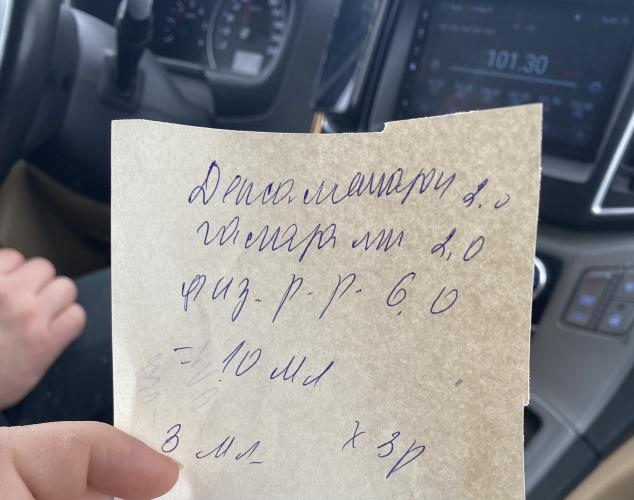 101.30
Дексаметазон 2.0
2.0
физ. р-р. 6.0
= 10 мл
3 мл х 3р